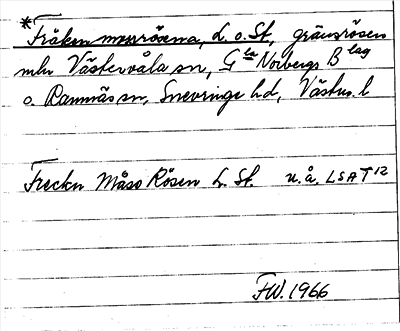 *Fräkenmossrösena, L. o. St., gränsrösen
mln Västervåla sn, Gla Norbergs Blag
o. Ramnäs sn, Snevringe hd, Västm. l
Freckn Måso Rösen L. St. u.å. LSA T12
FW. 1966